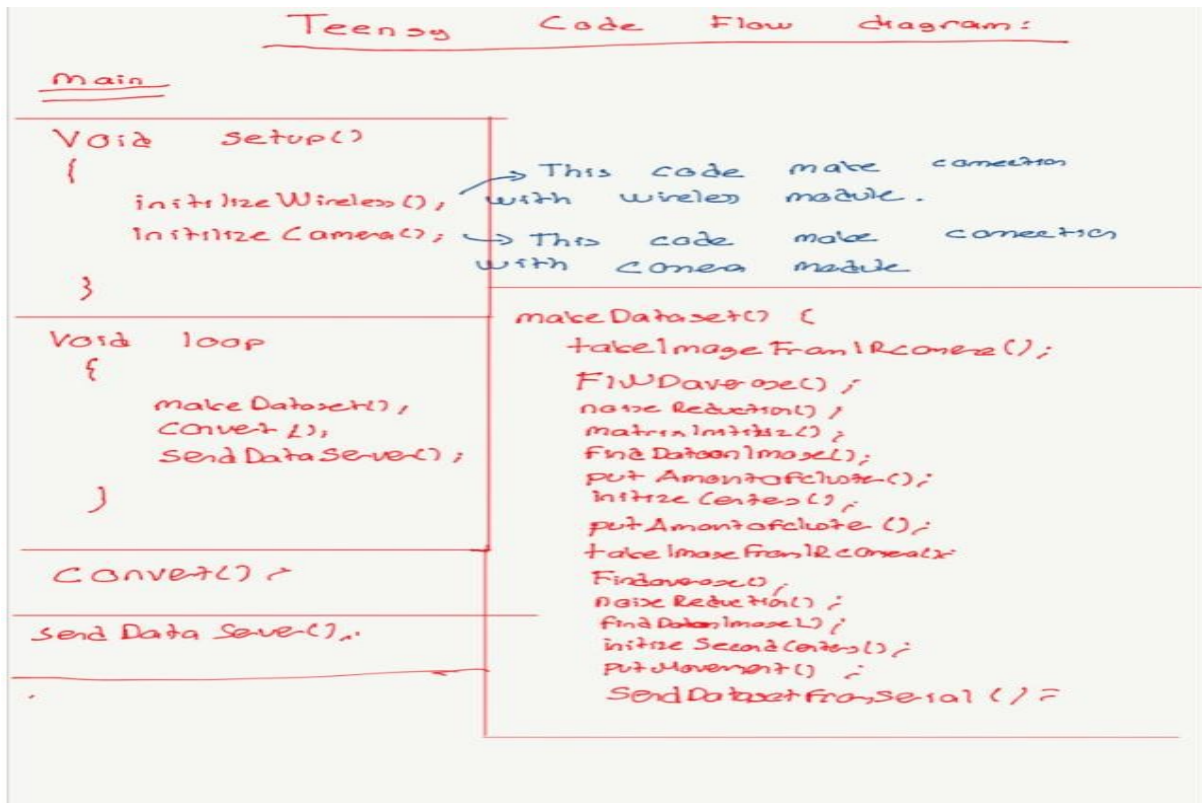 Teensy Code Flow diagram:
main
Void setup()
{
initilizeWireless();
initilizeCamera();
}
→ This code make conection
with wireless module.
→ This code make conection
with camera module
Void loop
{
makeDataset();
convert();
sendDataServer();
}
convert();
send Data Server();
makeDataset() {
takeImageFromIRcamera();
noiseReduction();
findDataonImage();
putAmontofcluster();
putAmontofcluster();
takeImageFromIRcamera();
Findaverage();
noiseReduction();
findDataonImage();
initize SecondCenters();
putMovement();
SendDatasetFromSerial();